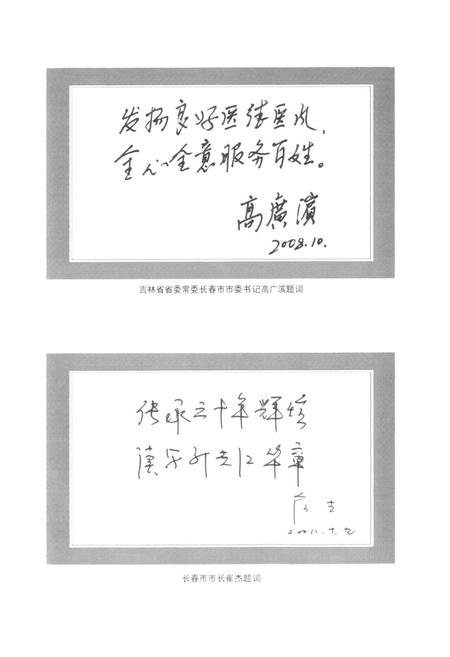 发扬良好医德医风，
全心全意服务百姓。
高廣濱
2008.10.
吉林省省委常委长春市市委书记高广滨题词
传承六十年辉煌
谱写新世纪华章
长春市市长崔杰题词